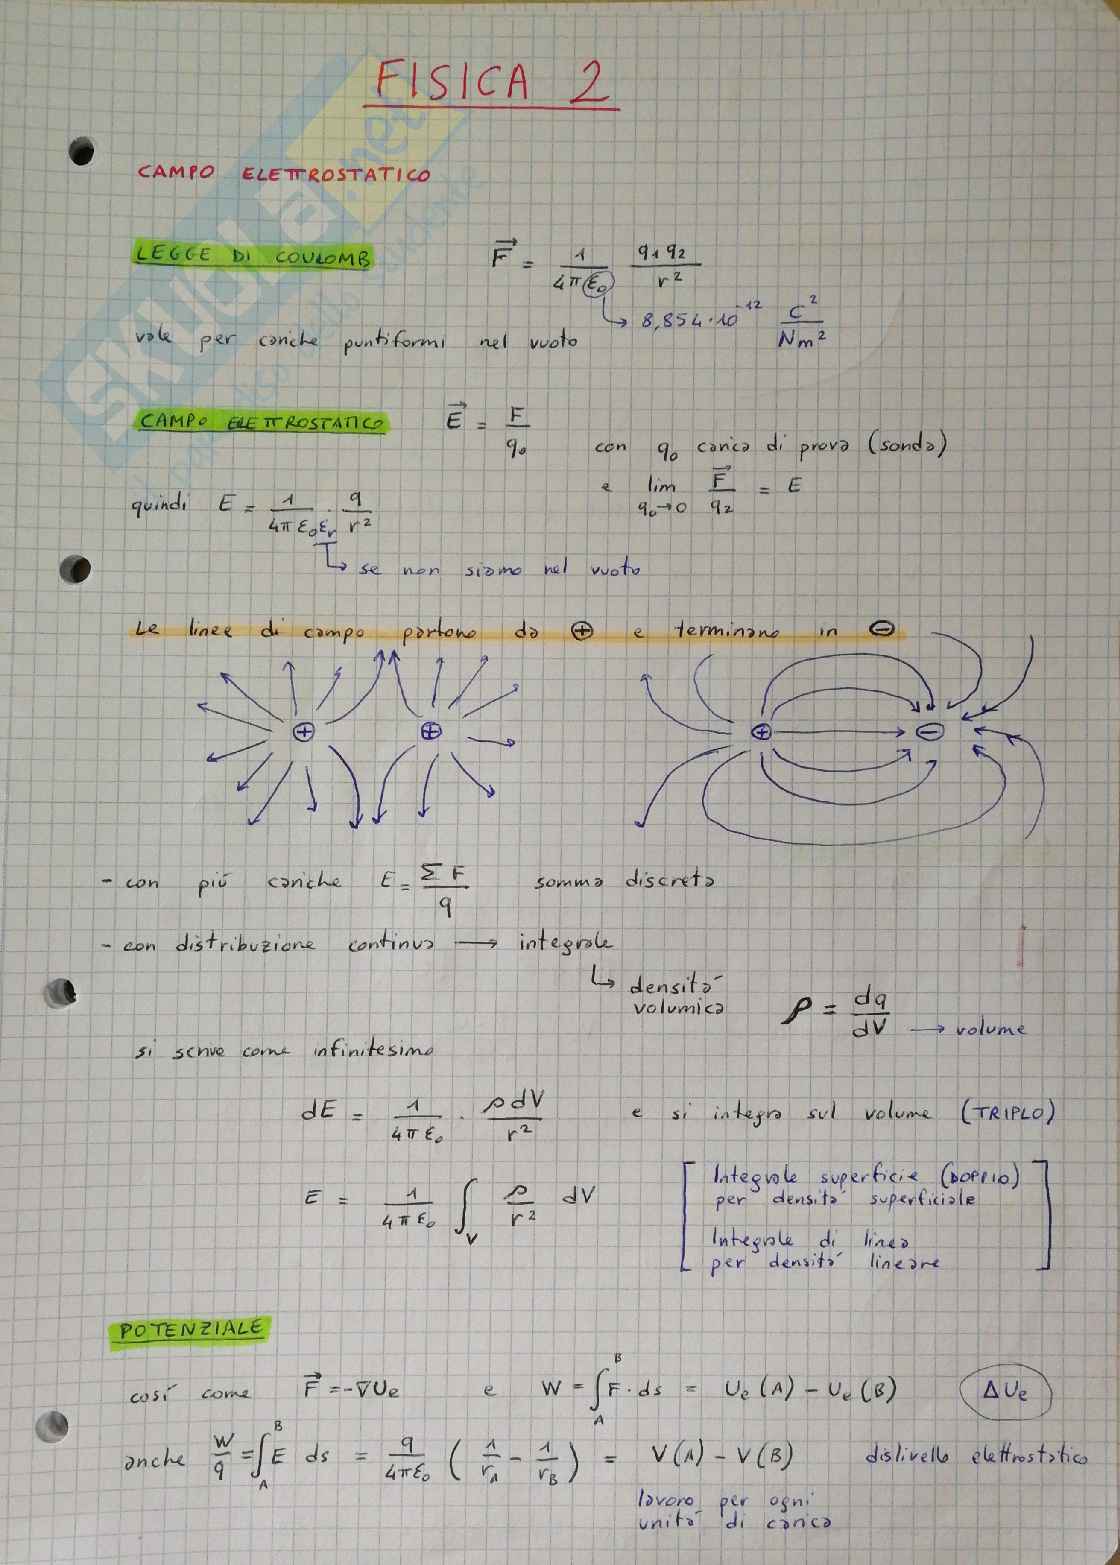 FISICA 2
CAMPO ELETTROSTATICO
LEGGE DI COULOMB F⃗ = 1/(4πε₀) q₁q₂/r²
→ 8,854·10⁻¹² C²/Nm²
vale per cariche puntiformi nel vuoto
CAMPO ELETTROSTATICO E⃗ = F/q₀
con q₀ carica di prova (sonda)
e lim q₀→0 F⃗/q₂ = E
quindi E = 1/(4πε₀εᵣ) · q/r²
↳ se non siamo nel vuoto
Le linee di campo partono da ⊕ e terminano in ⊖
⊕ ⊕ ⊕ ⊖
- con più cariche E = ΣF/q somma discreta
- con distribuzione continua → integrale
↳ densità
volumica ρ = dq/dV → volume
si scrive come infinitesimo
dE = 1/(4πε₀) · ρdV/r² e si integra sul volume (TRIPLO)
E = 1/(4πε₀) ∫_V ρ/r² dV
Integrale superficie (DOPPIO)
per densità superficiale
Integrale di linea
per densità lineare
POTENZIALE
così come F⃗ = -∇Ue e W = ∫_A^B F·ds = Ue(A) - Ue(B) ΔUe
anche W/q = ∫_A^B E ds = q/(4πε₀) (1/r_A - 1/r_B) = V(A) - V(B) dislivello elettrostatico
lavoro per ogni
unità di carica
SKUOLA.net